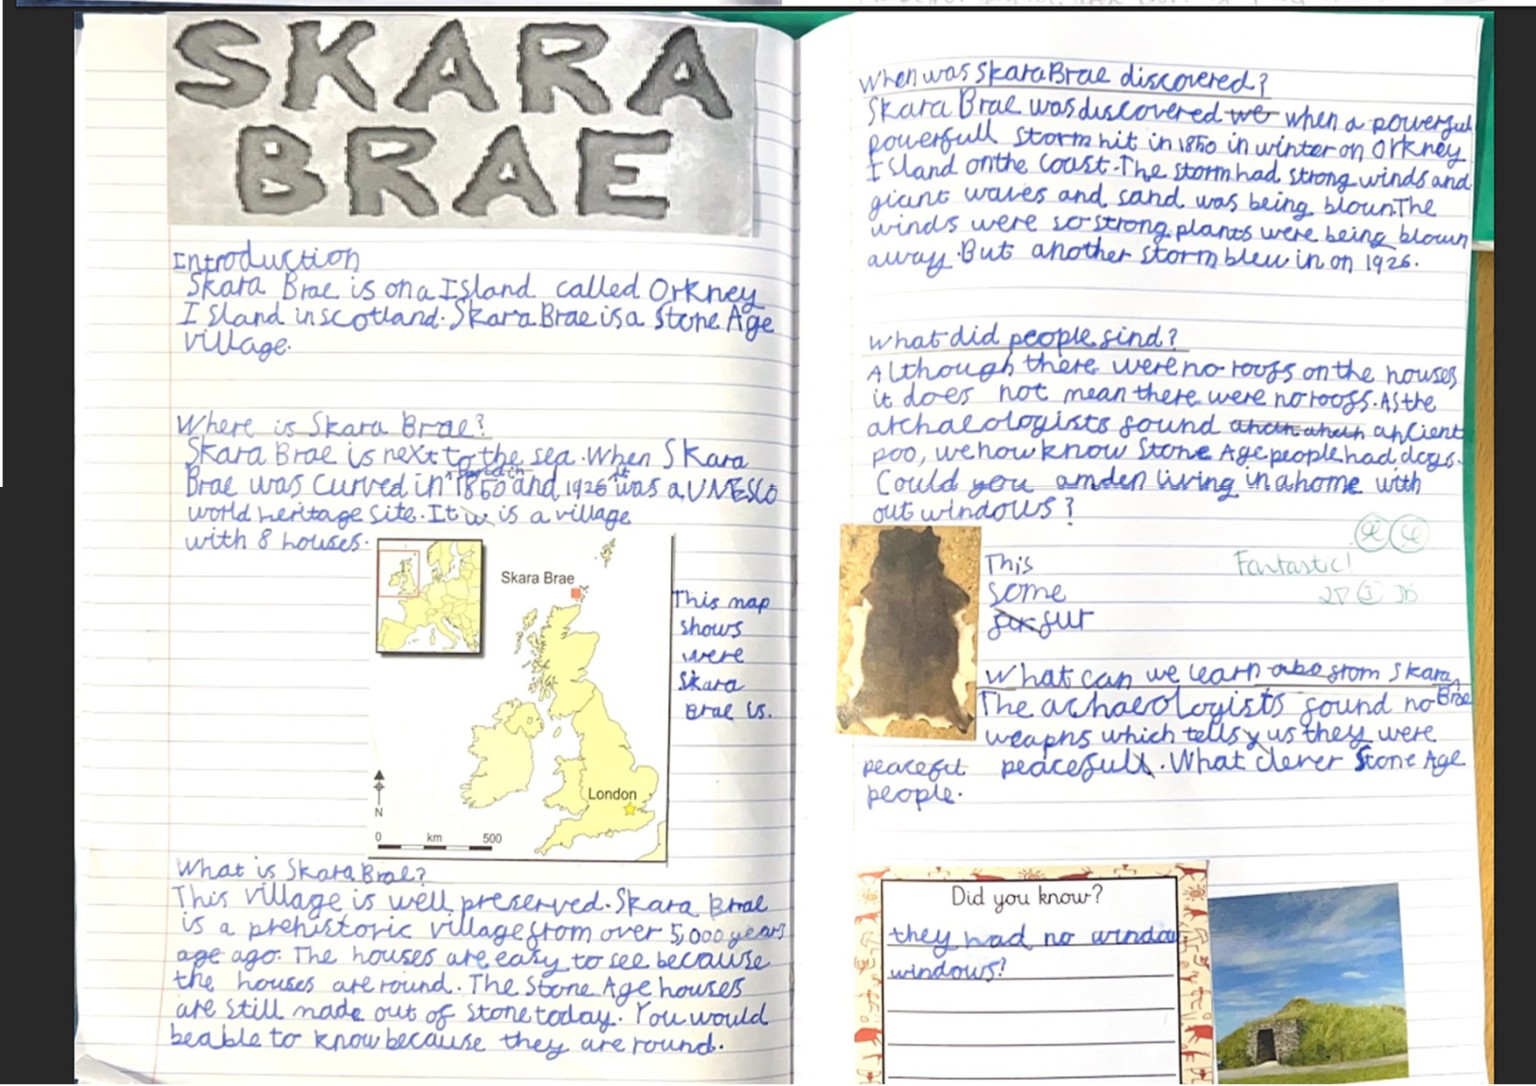 SKARA
BRAE
Introduction
Skara Brae is on a Island called Orkney
Island in scotland. Skara Brae is a Stone Age
village.
Where is Skara Brae?
Skara Brae is next to the sea. When Skara
Brae was curved in 1850 and 1926 it was a UNESCO
world heritage site. It w is a village
with 8 houses.
Skara Brae
London
N
0 km 500
This map
shows
were
Skara
Brae is.
What is Skara Brae?
This village is well preserved. Skara Brae
is a prehistoric village from over 5,000 years
age ago. The houses are easy to see because
the houses are round. The Stone Age houses
are still made out of stone today. You would
be able to know because they are round.
When was Skara Brae discovered?
Skara Brae was discovered we when a powerful
powerfull storm hit in 1850 in winter on Orkney
Island on the coast. The storm had strong winds and
giant waves and sand was being bloun. The
winds were so strong plants were being blown
away. But another storm blew in on 1926.
What did people find?
Although there were no roofs on the houses
it does not mean there were no roofs. As the
archaeologists found ancient
poo, we now know Stone Age people had dogs.
Could you amden living in a home with
out windows?
Fantastic!
This
some
fur
What can we learn abo from Skara
Brae
The achaeologists found no
weapns which tells y us they were
peacefil peacefull. What clever Stone Age
people.
Did you know?
they had no window
windows!